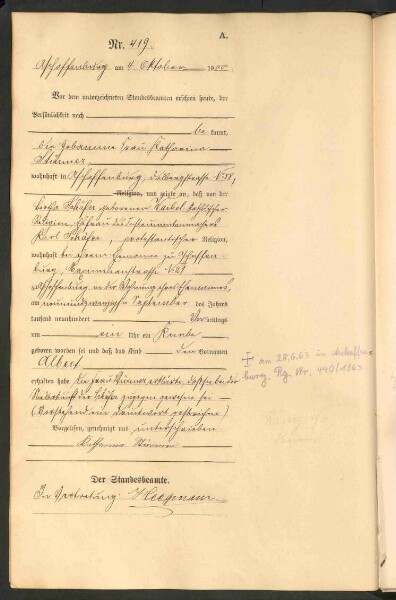 A.
Nr. 419.
Aschaffenburg am 4. Oktober 1900.
Vor dem unterzeichneten Standesbeamten erschien heute, der
Persönlichkeit nach
be kannt,
die Hebamme Frau Katharina
wohnhaft in Aschaffenburg, Dalbergstraße
Religion, und zeigte an, daß von der
geborenen katholischer
Religion, Ehefrau des Instrumentenmachers
Karl Schäfer, protestantischer Religion,
wohnhaft bei ihrem Ehemanne zu Aschaffen-
burg,
zu Aschaffenburg in der Wohnung ihres Ehemannes,
am neunundzwanzigsten September des Jahres
tausend neunhundert Vor mittags
um ein Uhr ein Knabe
geboren worden sei und daß das Kind den Vornamen
Albert
erhalten habe. Die Frau erklärte, daß sie bei der
Niederkunft der Schäfer zugegen gewesen sei.
(Vorstehend ein Druckwort gestrichen)
Vorgelesen, genehmigt und unterschrieben
Katharina
Der Standesbeamte.
In Vertretung:
+ am 28.6.63 in Aschaffen-
burg. Rg. Nr. 440/1963